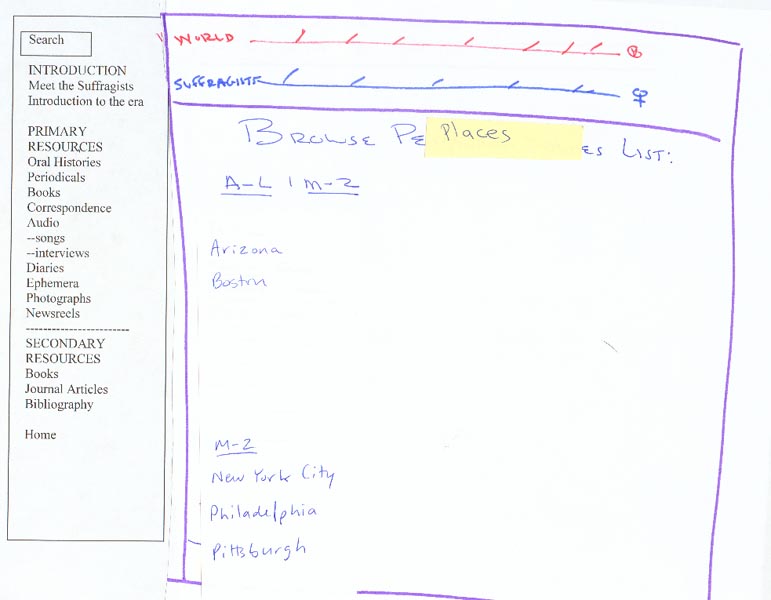 Search
INTRODUCTION
Meet the Suffragists
Introduction to the era
PRIMARY
RESOURCES
Oral Histories
Periodicals
Books
Correspondence
Audio
--songs
--interviews
Diaries
Ephemera
Photographs
Newsreels
-----------------------
SECONDARY
RESOURCES
Books
Journal Articles
Bibliography
Home
WORLD
SUFFRAGISTS
BROWSE PE Places ES LIST:
A-L | M-Z
Arizona
Boston
M-Z
New York City
Philadelphia
Pittsburgh